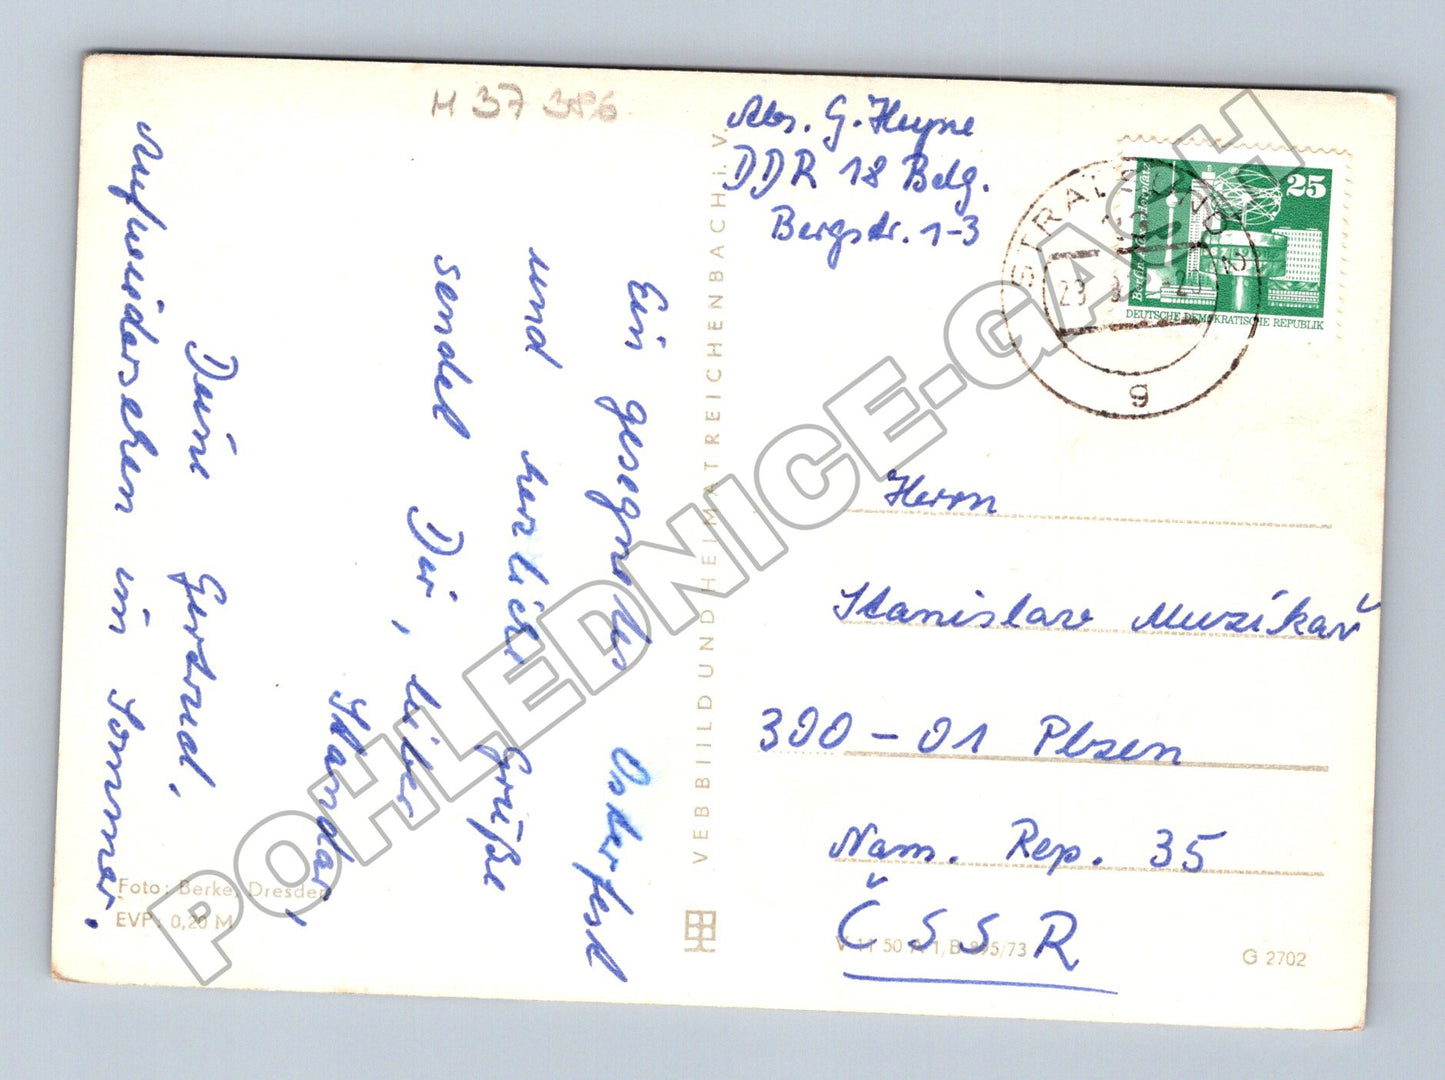 H 37 386
Abs. G. Heyne
DDR 18 Bdg.
Bergstr. 1-3
STRALSUND
g
25
Berlin Alexanderplatz
DEUTSCHE DEMOKRATISCHE REPUBLIK
Ein gesegnetes Osterfest
und herzliche Grüße
sendet Dir, lieber
Standa,
Deine Gertrud,
Aufwiedersehen im Sommer.
VEB BILD UND HEIMAT REICHENBACH i. V.
Herrn
Stanislav Muzíkař
300-01 Plzen
Nam. Rep. 35
ČSSR
Foto: Berke, Dresden
EVP: 0,20 M
V 11 50 A 1, B 895/73
G 2702
POHLEDNICE-GACH